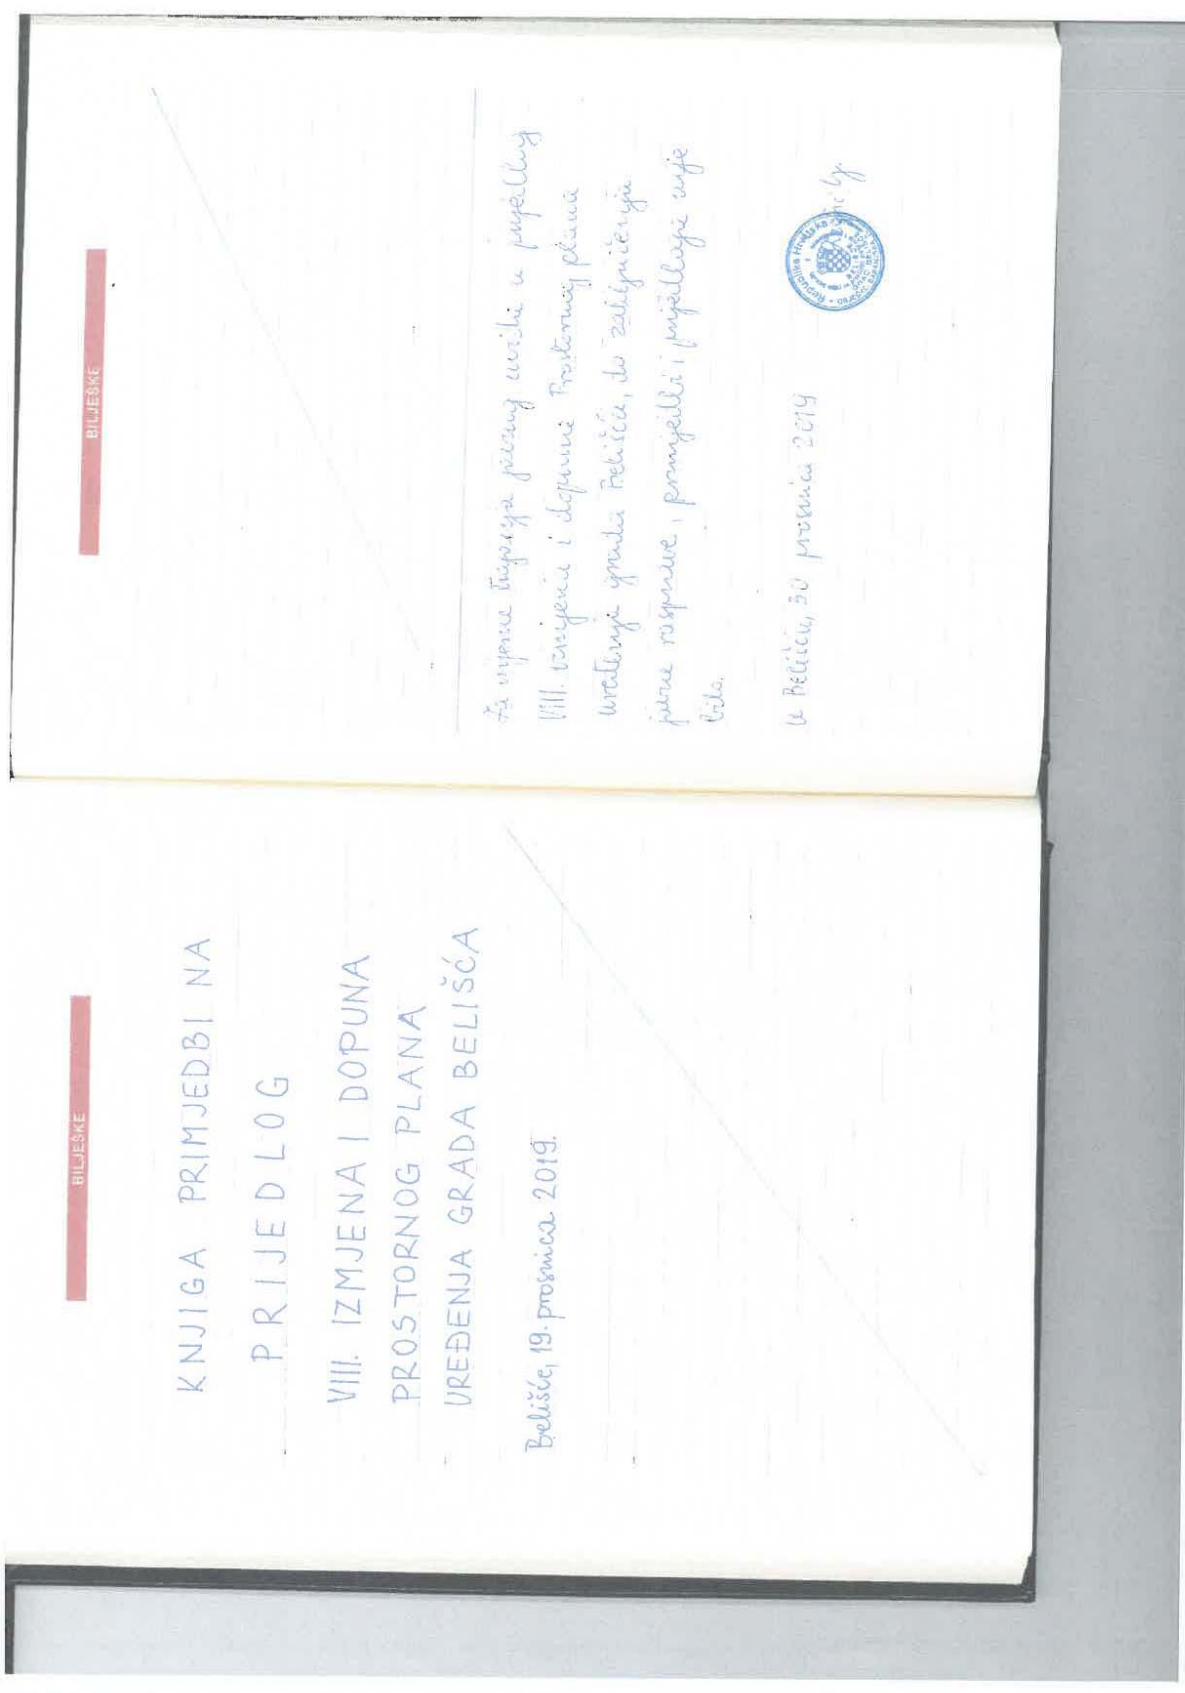 BILJEŠKE
KNJIGA PRIMJEDBI NA
PRIJEDLOG
VIII. IZMJENA I DOPUNA
PROSTORNOG PLANA
UREĐENJA GRADA BELIŠĆA
Belišće, 19. prosinca 2019.
BILJEŠKE
Za vrijeme trajanja javnog uvida u prijedlog
VIII. izmjena i dopuna Prostornog plana
uređenja grada Belišća, do zaključenja
javne rasprave, primjedbi i prijedloga nije
bilo.
U Belišću, 30 prosinca 2019
Republika Hrvatska